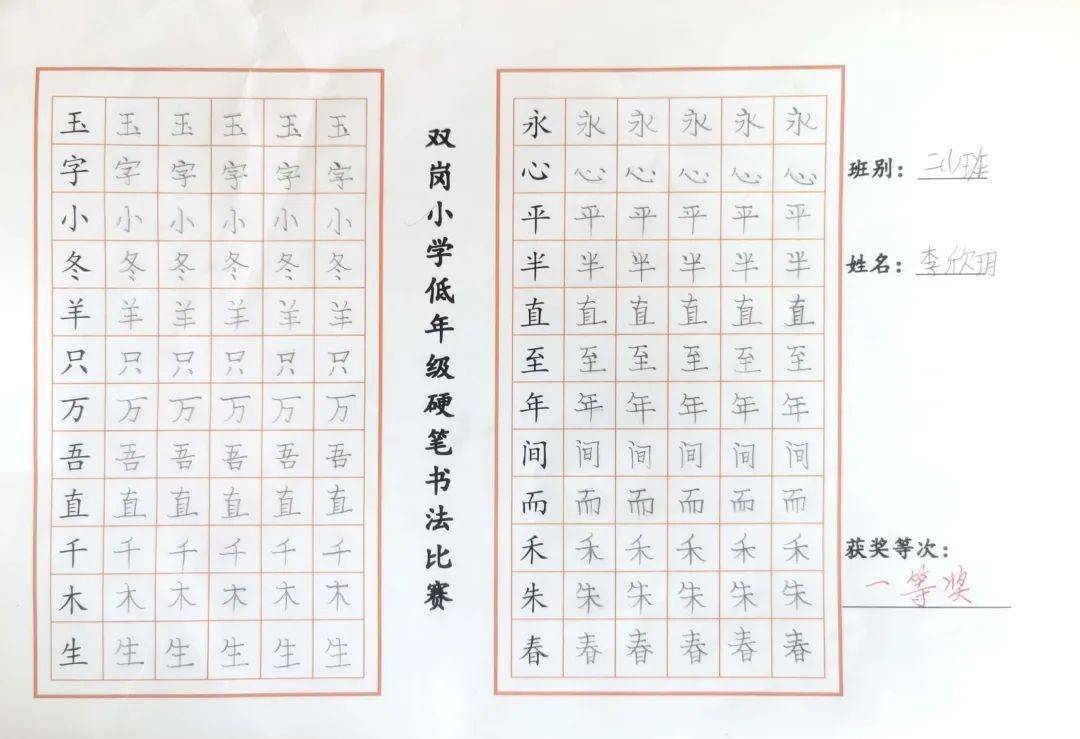 玉 玉 玉 玉 玉 玉
字 字 字 字 字 字
小 小 小 小 小 小
冬 冬 冬 冬 冬 冬
羊 羊 羊 羊 羊 羊
只 只 只 只 只 只
万 万 万 万 万 万
吾 吾 吾 吾 吾 吾
直 直 直 直 直 直
千 千 千 千 千 千
木 木 木 木 木 木
生 生 生 生 生 生
双岗小学低年级硬笔书法比赛
永 永 永 永 永 永
心 心 心 心 心 心
平 平 平 平 平 平
半 半 半 半 半 半
直 直 直 直 直 直
至 至 至 至 至 至
年 年 年 年 年 年
间 间 间 间 间 间
而 而 而 而 而 而
禾 禾 禾 禾 禾 禾
朱 朱 朱 朱 朱 朱
春 春 春 春 春 春
班别： 班
姓名：李欣玥
获奖等次：
一等奖